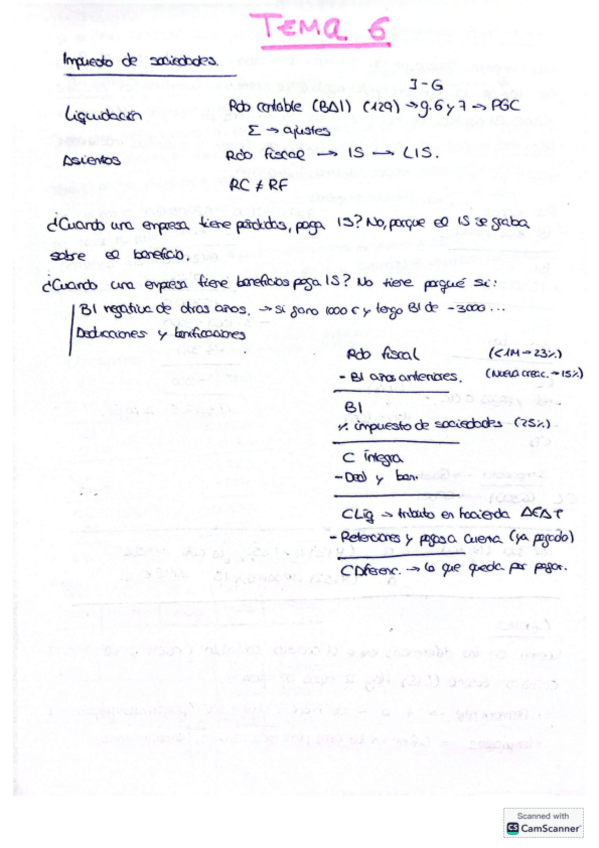 TEMA 6
Impuesto de sociedades.
I-G
Liquidación Rdo contable (BAI) (129) → g.6 y 7 → PGC
Σ → ajustes
Asientos Rdo fiscal → IS → LIS.
RC ≠ RF
¿Cuando una empresa tiene pérdidas, paga IS? No, porque el IS se graba
sobre el beneficio.
¿Cuando una empresa tiene beneficios paga IS? No tiene porqué si:
BI negativa de otros años. → si gano 1000 € y tengo BI de -3000...
Deducciones y bonificaciones
Rdo fiscal (<1M → 23%)
- BI años anteriores. (Nueva creac. → 15%)
BI
% impuesto de sociedades (25%)
C íntegra
- Ded y bon.
CLiq → tributo en hacienda AEAT
- Retenciones y pagos a cuenta (ya pagado)
CDiferenc. → lo que queda por pagar.
Scanned with
CS CamScanner